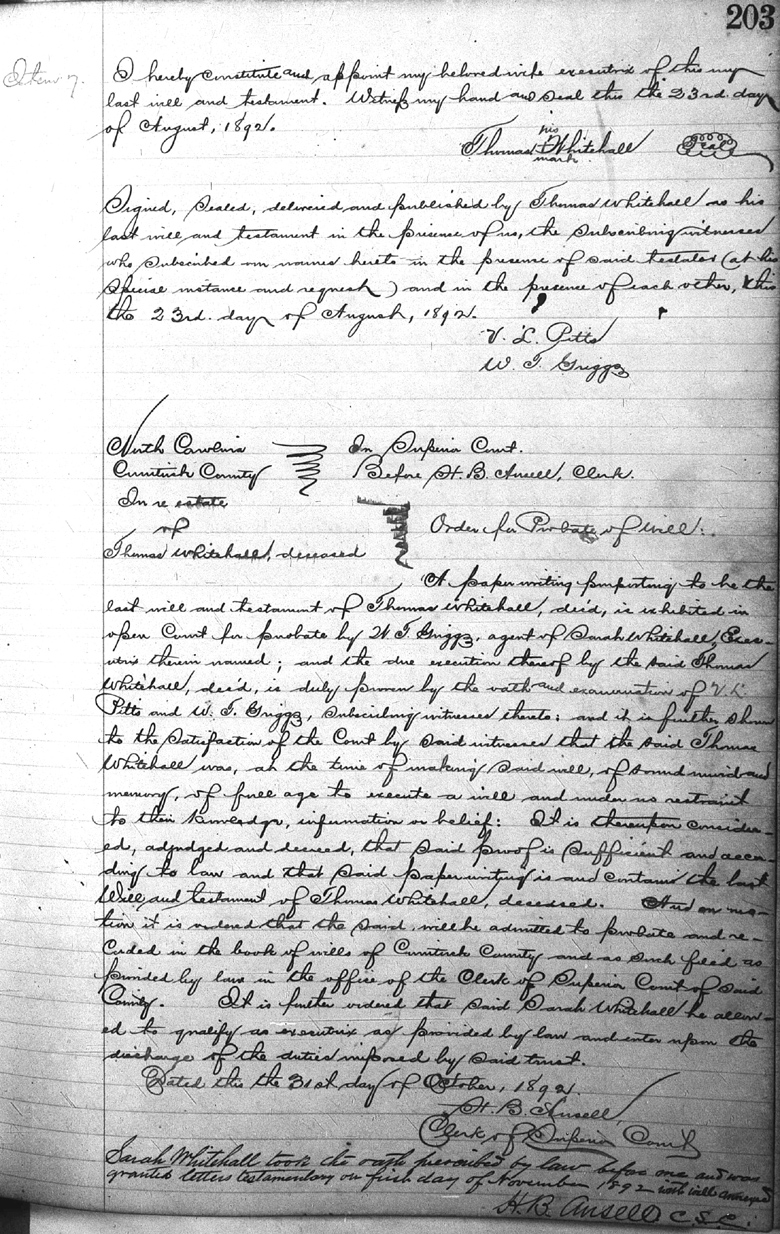 203
Item 7. I hereby constitute and appoint my beloved wife executrix of this my
last will and testament. Witness my hand and seal this the 23rd. day
of August, 1892.
his
Thomas Whitehall Seal
mark.
Signed, sealed, delivered and published by Thomas Whitehall as his
last will and testament in the presence of us, the subscribing witnesses
who subscribed our names hereto in the presence of said testator (at his
special instance and request) and in the presence of each other, this
the 23rd. day of August, 1892.
V. L. Pitts
W. T. Griggs
North Carolina In Superior Court.
Currituck County Before H. B. Ansell, Clerk.
In re estate
of Order for Probate of Will.
Thomas Whitehall, deceased
A paper writing purporting to be the
last will and testament of Thomas Whitehall, dec'd, is exhibited in
open Court for probate by W. T. Griggs, agent of Sarah Whitehall, Exec-
utrix therein named; and the due execution thereof by the said Thomas
Whitehall, dec'd, is duly proven by the oath and examination of V. L.
Pitts and W. T. Griggs, subscribing witnesses thereto; and it is further shown
to the satisfaction of the Court by said witnesses that the said Thomas
Whitehall was, at the time of making said will, of sound mind and
memory, of full age to execute a will and under no restraint
to their knowledge, information or belief: It is thereupon consider-
ed, adjudged and decreed, that said proof is sufficient and accor-
ding to law and that said paper writing is and contains the last
Will and testament of Thomas Whitehall, deceased. And on mo-
tion it is ordered that the said will be admitted to probate and re-
corded in the book of wills of Currituck County and as such filed as
provided by law in the office of the Clerk of Superior Court of said
County. It is further ordered that said Sarah Whitehall be allow-
ed to qualify as executrix as provided by law and enter upon the
discharge of the duties imposed by said trust.
Dated this the 31st day of October, 1892.
H. B. Ansell,
Clerk of Superior Court
Sarah Whitehall took the oath prescribed by law before me and was
granted letters testamentary on first day of November 1892 with will annexed
H. B. Ansell C. S. C.